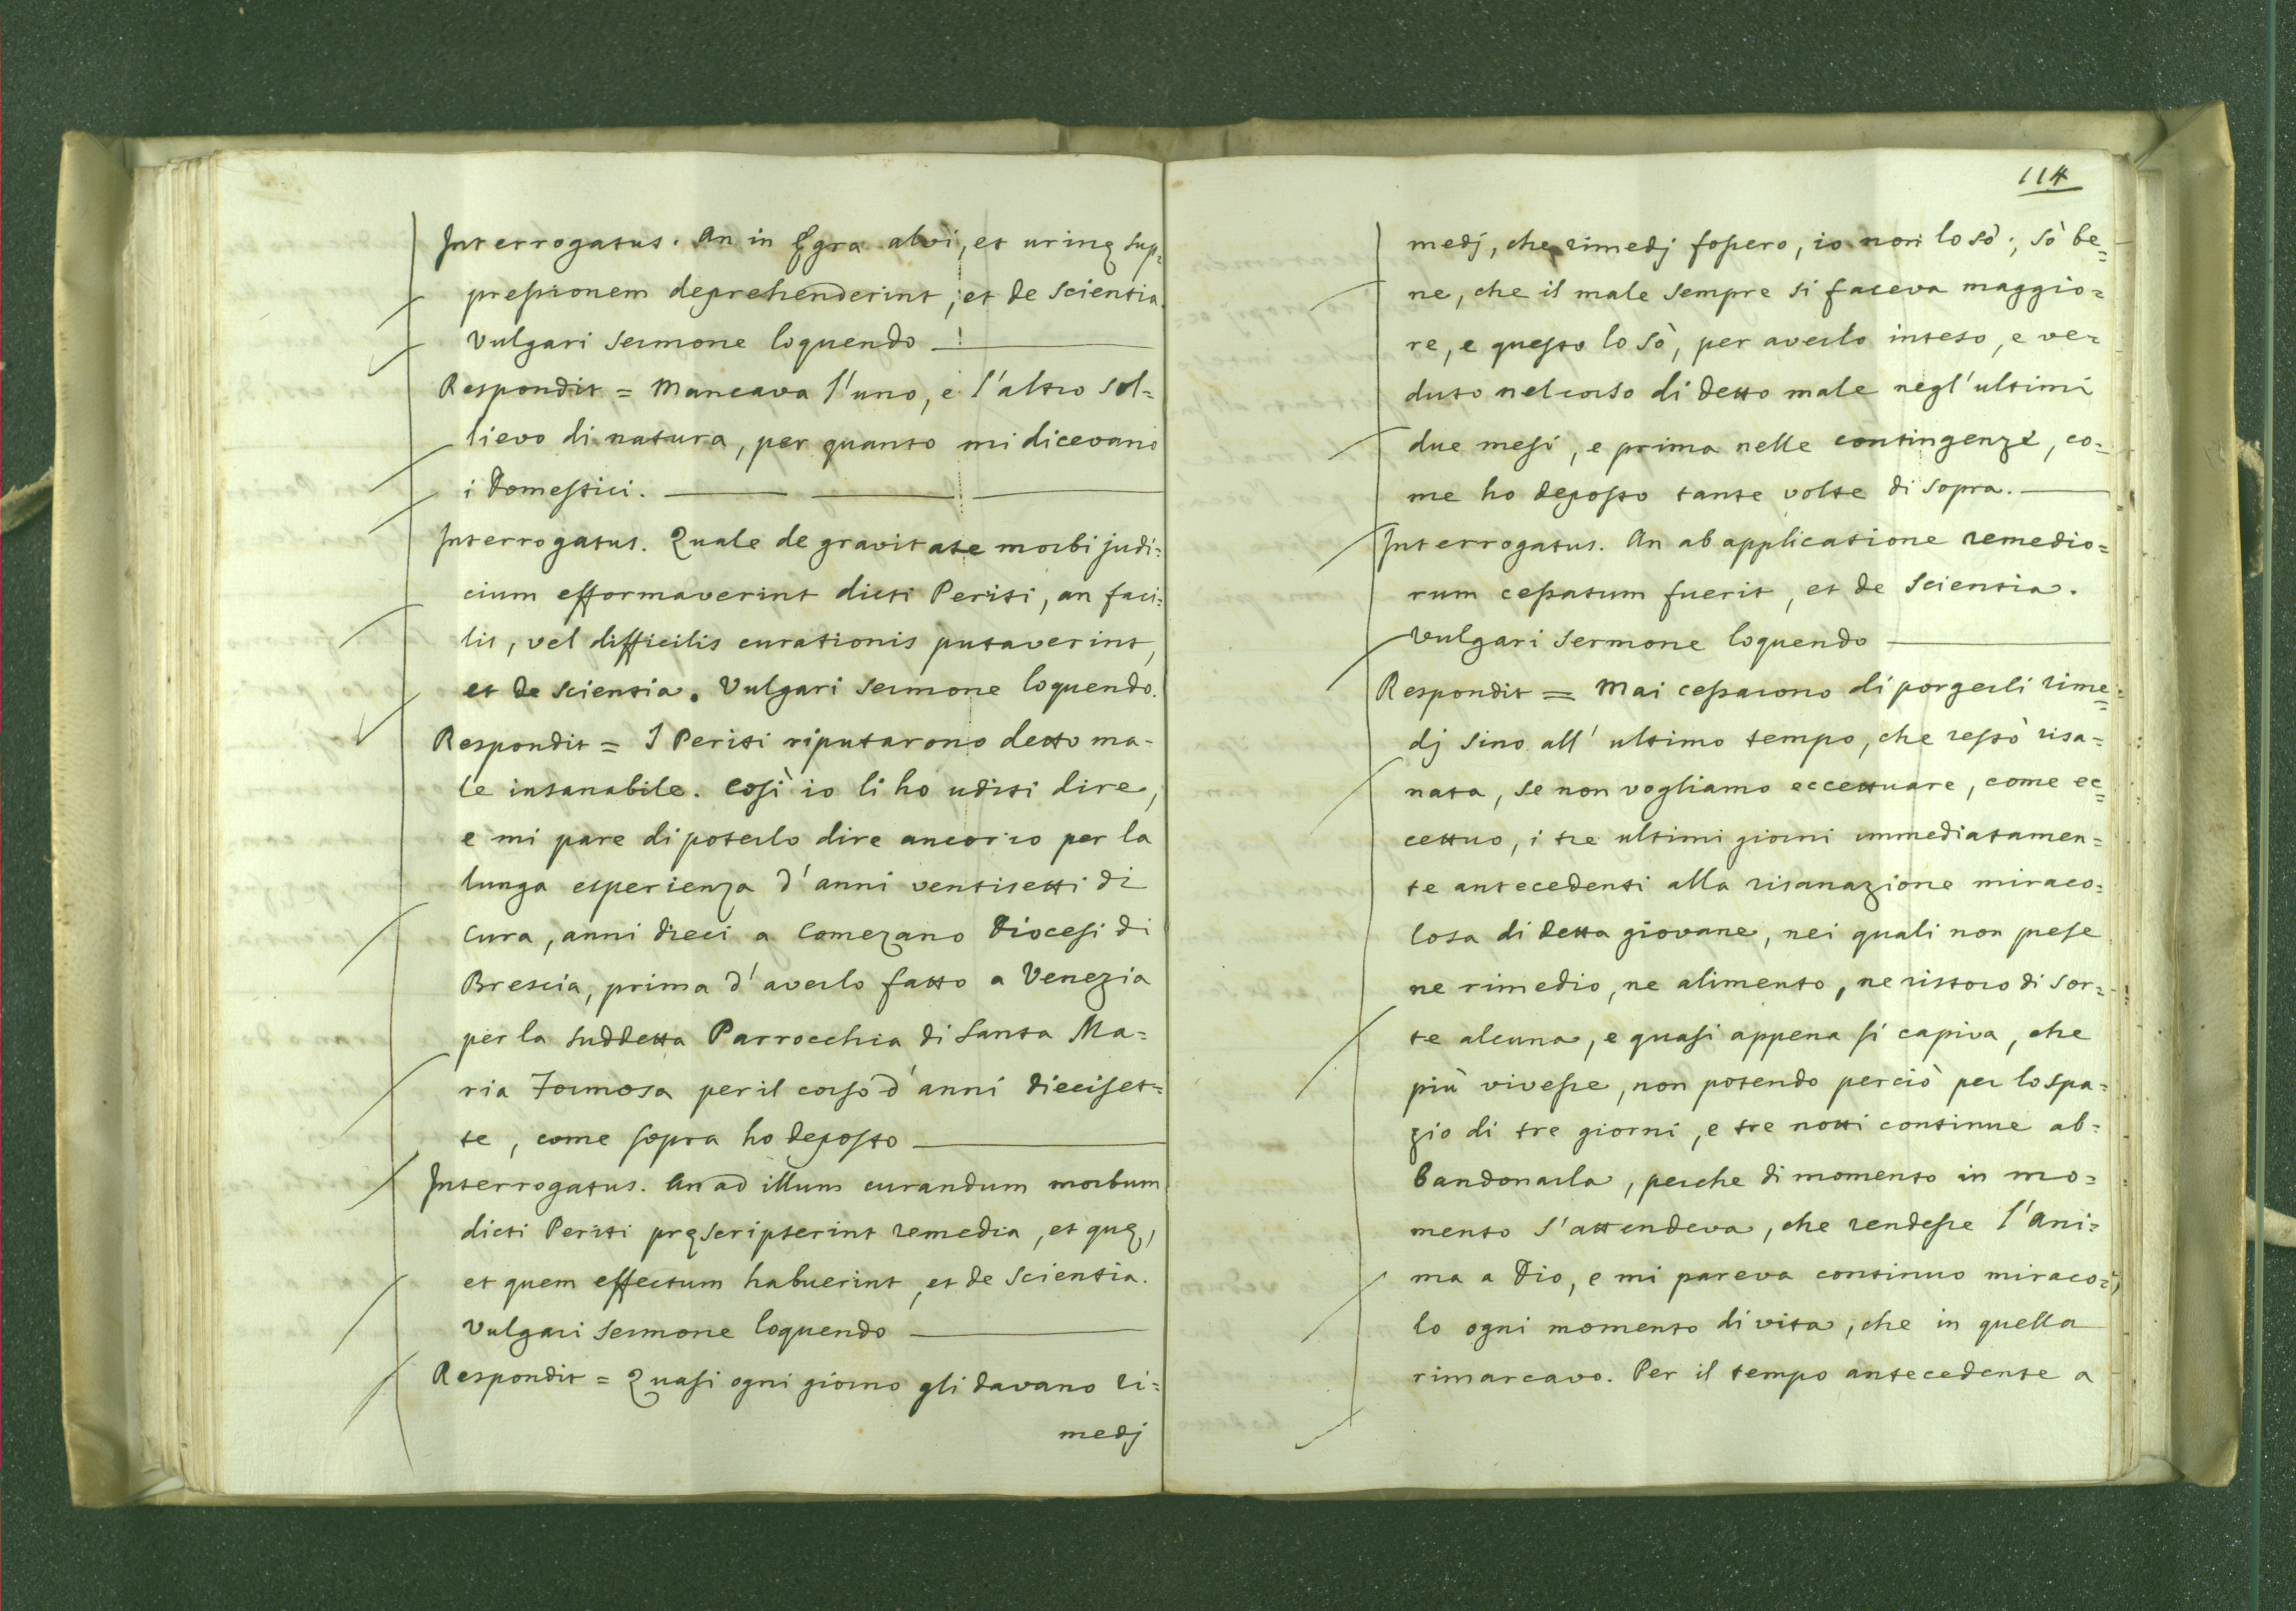 Interrogatus. An in Ęgra alvi, et urinę sup=
pressionem deprehenderint, et de scientia.
Vulgari sermone loquendo
Respondit = Mancava l'uno, e l'altro sol=
lievo di natura, per quanto mi dicevano
i Domestici.
Interrogatus. Quale de gravitate morbi judi=
cium efformaverint dicti Periti, an faci=
lis, vel difficilis curationis putaverint,
et de scientia. Vulgari sermone loquendo.
Respondit = I Periti riputarono detto ma-
le insanabile. Così io li ho uditi dire,
e mi pare di poterlo dire ancor io per la
lunga esperienza d'anni ventisetti di
Cura, anni dieci a Comezano Diocesi di
Brescia, prima d'averlo fatto a Venezia
per la suddetta Parrocchia di Santa Ma=
ria Formosa per il corso d'anni dieciset=
te, come sopra ho deposto
Interrogatus. An ad illum curandum morbum
dicti Periti pręscripserint remedia, et quę,
et quem effectum habuerint, et de scientia.
Vulgari sermone loquendo
Respondit = Quasi ogni giorno gli davano ri=
medj
114
medj, che rimedj fossero, io non lo sò; sò be=
ne, che il male sempre si faceva maggio=
re, e questo lo sò, per averlo inteso, e ve=
duto nel corso di detto male negl'ultimi
due mesi, e prima nelle contingenze, co=
me ho deposto tante volte di sopra.
Interrogatus. An ab applicatione remedio=
rum cessatum fuerit, et de scientia.
Vulgari sermone loquendo
Respondit = Mai cessarono di porgerli rime=
dj sino all'ultimo tempo, che restò risa=
nata, se non vogliamo eccettuare, come ec=
cettuo, i tre ultimi giorni immediatamen=
te antecedenti alla risanazione miraco=
losa di detta giovane, nei quali non prese
ne rimedio, ne alimento, ne ristoro di sor=
te alcuna, e quasi appena si capiva, che
più vivesse, non potendo perciò per lo spa=
zio di tre giorni, e tre notti continue ab=
bandonarla, perche di momento in mo=
mento s'attendeva, che rendesse l'Ani=
ma a Dio, e mi pareva continuo miraco=
lo ogni momento di vita, che in quella
rimarcavo. Per il tempo antecedente a